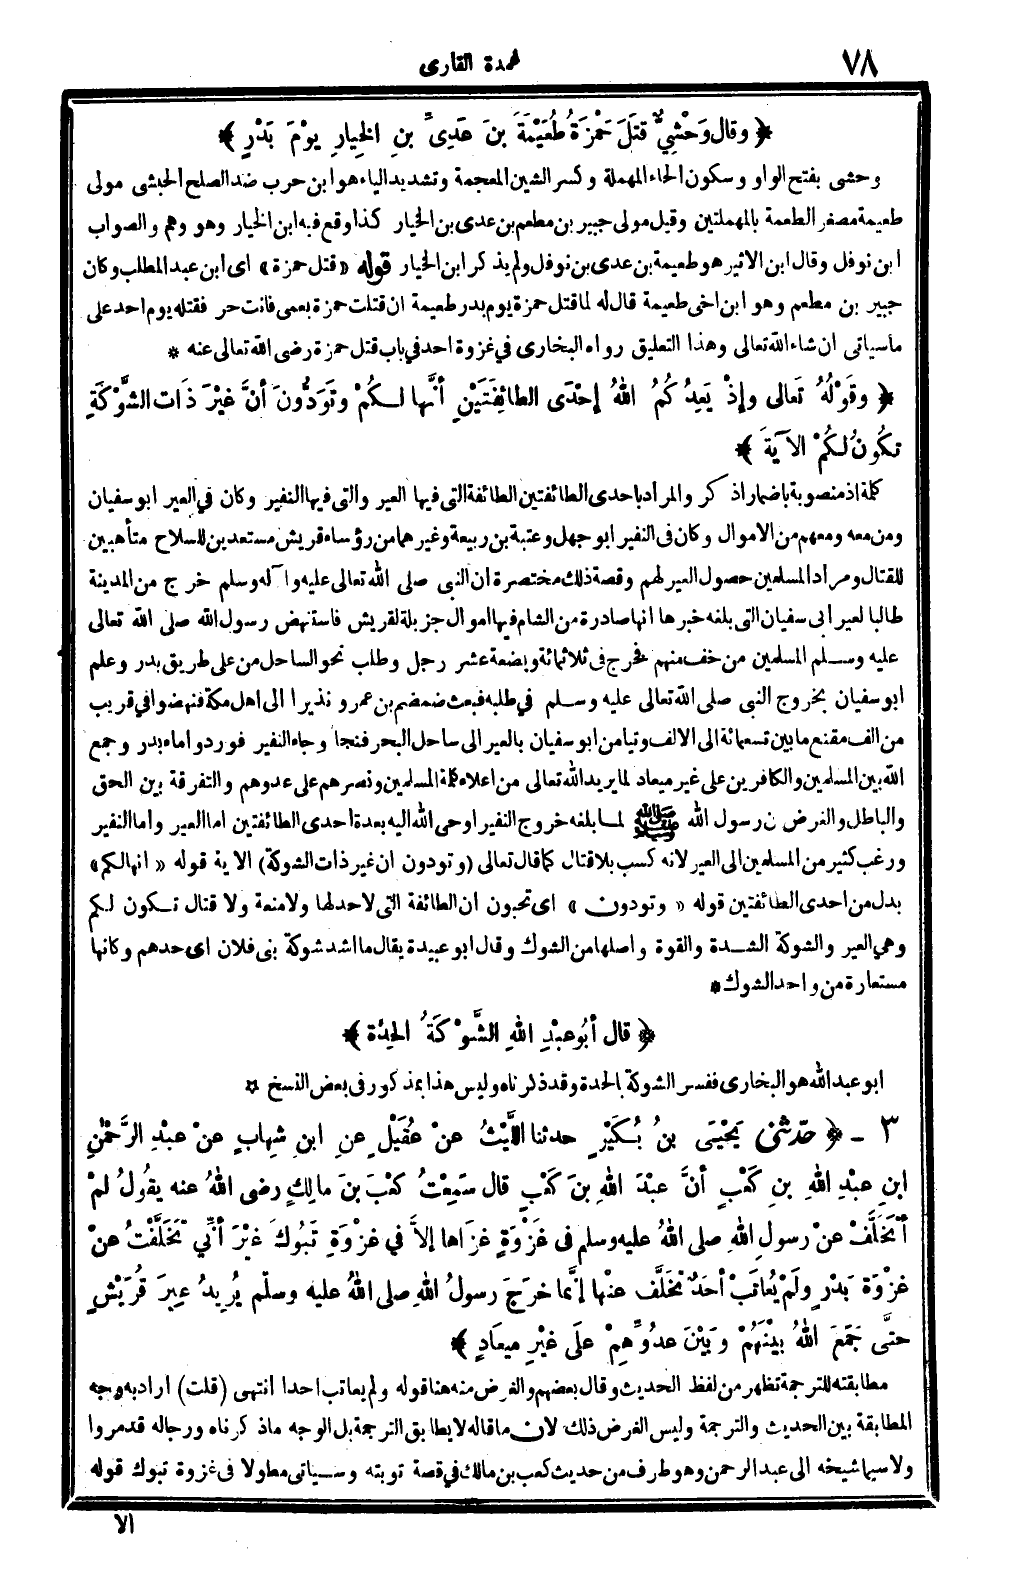 ٧٨
عمدة القارى
﴿ وقال وَحْشِيٌّ قَتَلَ حَمْزَةُ طُعَيْمَةَ بنَ عَدِىِّ بنِ الخِيارِ يوْمَ بَدْرٍ ﴾
وحشى بفتح الواو وسكون الحاء المهملة وكسر الشين المعجمة وتشديد الياء هو ابن حرب ضد الصلح الحبشى مولى
طعيمة مصغر الطعمة بالمهملتين وقيل مولى جبير بن مطعم بن عدى بن الخيار كذا وقع فيه ابن الخيار وهو وهم والصواب
ابن نوفل وقال ابن الاثير هو طعيمة بن عدى بن نوفل ولم يذكر ابن الخيار قوله «قتل حمزة» اى ابن عبد المطلب وكان
جبير بن مطعم وهو ابن اخى طعيمة قال له لما قتل حمزة يوم بدر طعيمة ان قتلت حمزة بعمى فانت حر فقتله يوم احد على
ما سياتى ان شاء الله تعالى وهذا التعليق رواه البخارى في غزوة احد في باب قتل حمزة رضى الله تعالى عنه *
﴿ وقَوْلُهُ تَعالى وإذْ يَعِدُكُمُ اللهُ إحْدَى الطائِفَتَيْنِ أنَّها لـكُمْ وتَوَدُّونَ أنَّ غيْرَ ذَات الشَّوْكَةِ
تكُونُ لكُمْ الآيَةَ ﴾
كلمة اذ منصوبة باضمار اذكر والمراد باحدى الطائفتين الطائفة التى فيها العير والتى فيها النفير وكان في العير ابو سفيان
ومن معه ومعهم من الاموال وكان فى النفير ابو جهل وعتبة بن ربيعة وغيرهما من رؤساء قريش مستعدين للسلاح متأهبين
للقتال ومراد المسلمين حصول العير لهم وقصة ذلك مختصرة ان النبى صلى الله تعالى عليه وآله وسلم خرج من المدينة
طالبا لعير ابى سفيان التى بلغه خبرها انها صادرة من الشام فيها اموال جزيلة لقريش فاستنهض رسول الله صلى الله تعالى
عليه وسـلم المسلمين من خف منهم فخرج فى ثلاثمائة وبضعة عشر رجل وطلب نحو الساحل من على طريق بدر وعلم
ابو سفيان بخروج النبى صلى الله تعالى عليه وسـلم في طلبه فبعث ضمضم بن عمرو نذيرا الى اهل مكة فنهضوا في قريب
من الف مقنع ما بين تسعمائة الى الالف وتيامن ابو سفيان بالعير الى ساحل البحر فنجا وجاء النفير فوردوا ماء بدر وجمع
الله بين المسلمين والكافرين على غير ميعاد لما يريد الله تعالى من اعلاء كلمة المسلمين ونصرهم على عدوهم والتفرقة بين الحق
والباطل والغرض ن رسول الله ﷺ لما بلغه خروج النفير اوحى الله اليه بعدة احدى الطائفتين اما العير واما النفير
ورغب كثير من المسلمين الى العير لانه كسب بلا قتال كما قال تعالى (وتودون ان غير ذات الشوكة) الاية قوله «انها لكم»
بدل من احدى الطائفتين قوله «وتودون» اى تحبون ان الطائفة التى لا حد لها ولا منعة ولا قتال تـكون لـكم
وهي العير والشوكة الشـدة والقوة واصلها من الشوك وقال ابو عبيدة يقال ما اشد شوكة بنى فلان اى حدهم وكانها
مستعارة من واحد الشوك *
﴿ قال أبُو عبْدِ اللهِ الشَّوْكَةُ الحِدَّة ﴾
ابو عبد الله هو البخارى ففسر الشوكة بالحدة وقد ذكرناه وليس هذا بمذكور فى بعض النسخ *
٣ - ﴿ حَدّثنى يَحْيَى بنُ بُكَيْرٍ حدثنا اللَّيْثُ عنْ عُقَيْلٍ عنِ ابنِ شِهابٍ عنْ عبْدِ الرَّحْمٰنِ
ابنِ عبْدِ اللهِ بنِ كَعْبٍ أنَّ عبْدَ اللهِ بنَ كَعْبٍ قال سَمِعْتُ كعْبَ بنَ مالِكٍ رضى اللهُ عنه يقُولُ لمْ
أتَخَلَّفْ عنْ رسولِ اللهِ صلى اللهُ عليه وسلم فى غَزْوَةٍ غزَاها إلاَّ في غزْوَةِ تَبُوكَ غيْرَ أنِّي تخَلَّفْتُ عنْ
غزْوَةِ بَدْرٍ ولَمْ يُعاتَبْ أحَدٌ تخَلَّفَ عنْها إنَّما خرَجَ رسولُ اللهِ صلى اللهُ عليه وسلّم يُرِيدُ عِيرَ قُرَيْشٍ
حتَّى جَمَعَ اللهُ بيْنَهُمْ وبَيْنَ عدُوِّهِمْ علَى غيْرِ ميعَادٍ ﴾
مطابقته للترجمة تظهر من لفظ الحديث وقال بعضهم والغرض منه هنا قوله ولم يعاتب احدا انتهى (قلت) اراد به وجه
المطابقة بين الحديث والترجمة وليس الغرض ذلك لان ما قاله لا يطابق الترجمة بل الوجه ما ذكرناه ورجاله قد مروا
ولا سيما شيخه الى عبد الرحمن وهو طرف من حديث كعب بن مالك في قصة توبته وسـياتى مطولا فى غزوة تبوك قوله
الا